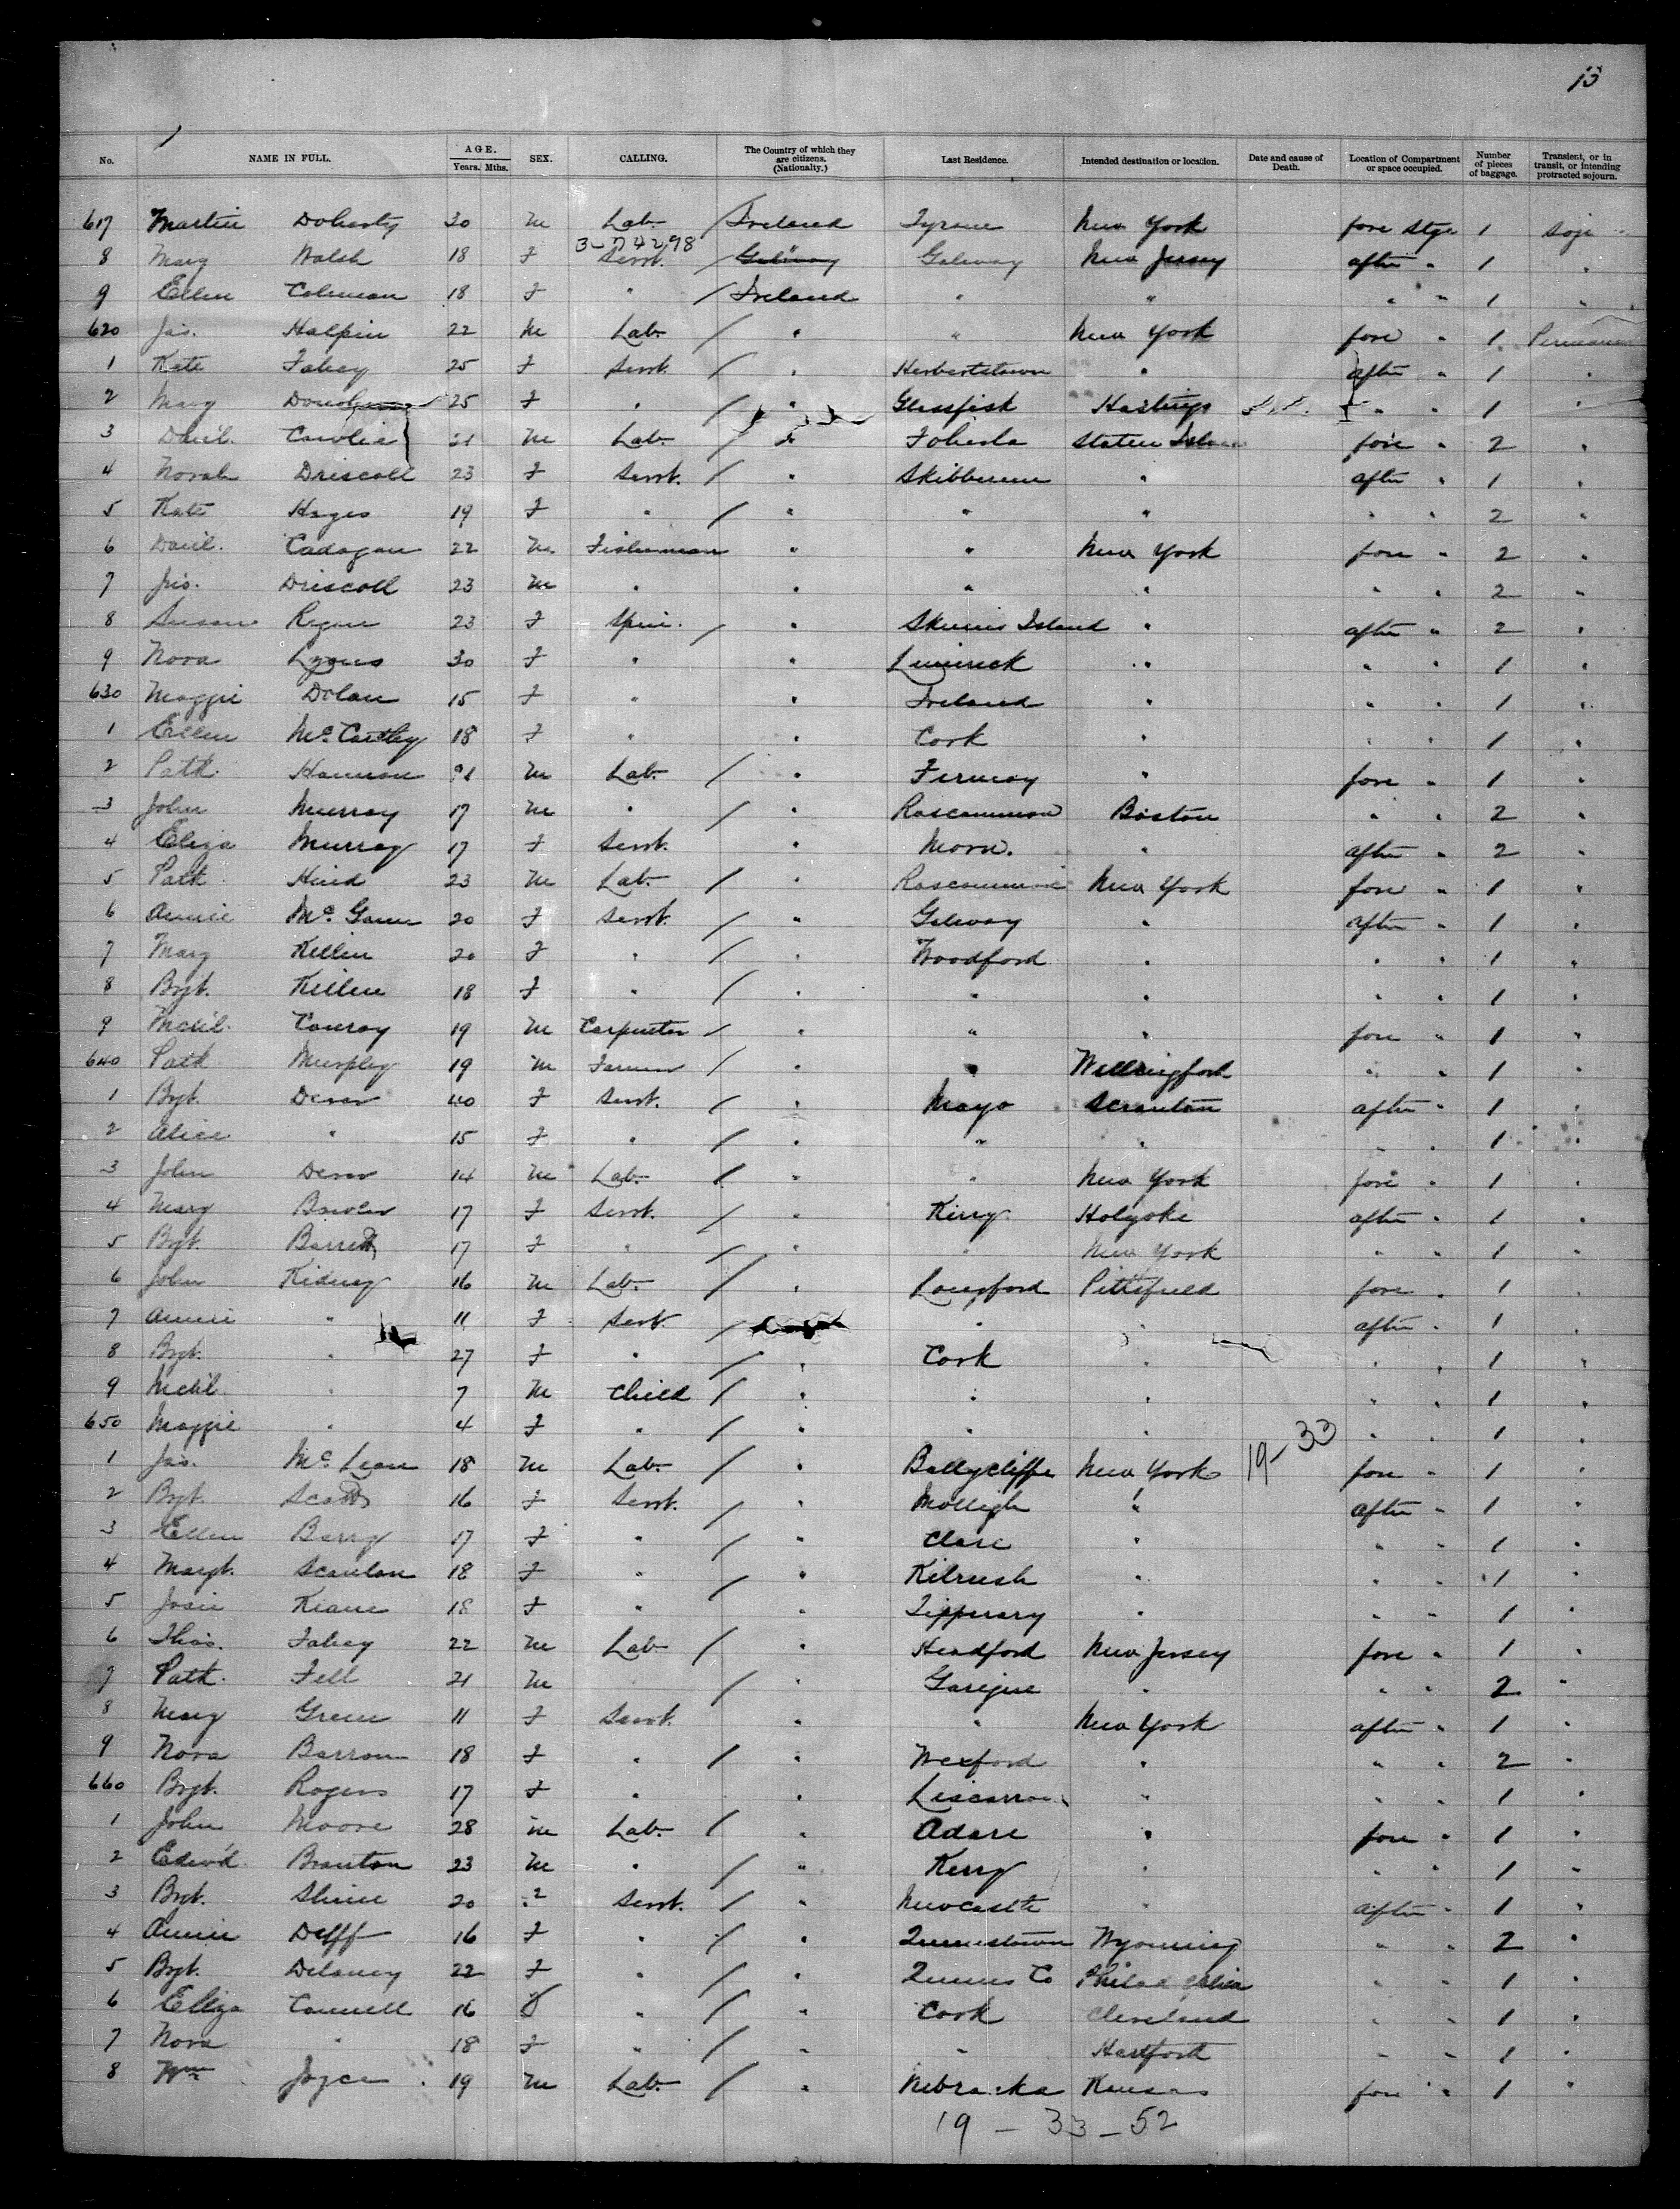 13
No. NAME IN FULL. AGE. Years. Mths. SEX. CALLING. The Country of which they are citizens. (Nationalty.) Last Residence. Intended destination or location. Date and cause of Death. Location of Compartment or space occupied. Number of pieces of baggage. Transient, or in transit, or intending protracted sojourn.
617 Martin Doherty 30 M Lab. / Ireland Tyrone New York fore Stge 1 Soj
3-74298
8 Mary Walsh 18 F Servt. / Galway " Galway New Jersey after " 1 "
9 Ellen Coleman 18 F " / Ireland " " " " 1 "
620 Jas. Halpin 22 M Lab. / " " New York fore " 1
1 Kate Fahey 25 F Servt. / " Herbertstown " after " 1 "
2 Mary 25 F " / " Hastings " " 1 "
3 Danl. 21 M Lab. / " Staten fore " 2 "
4 Norah Driscoll 23 F Servt. / " Skibbereen " after " 1 "
5 Kate Hayes 19 F " / " " " " " 2 "
6 Danl. Cadogan 22 M Fisherman " " New York fore " 2 "
7 Jas. Driscoll 23 M " " " " " " 2 "
8 Susan Regan 23 F Spin. / " Island " after " 2 "
9 Nora Lyons 30 F " " Limerick " " " 1 "
630 Maggie Dolan 15 F " " Ireland " " " 1 "
1 Ellen McCarthy 18 F " " Cork " " " 1 "
2 Patk. Hannon 21 M Lab. / " Fermoy " fore " 1 "
3 John Murray 17 M " / " Roscommon Boston " " 2 "
4 Eliza Murray 17 F Servt. " " after " 2 "
5 Patk. 23 M Lab. / " Roscommon New York fore " 1 "
6 Annie 20 F Servt. / " Galway " after " 1 "
7 Mary Killen 20 F " / " Woodford " " " 1 "
8 Bgt. Killen 18 F " / " " " " " 1 "
9 Michl. Conroy 19 M Carpenter / " " " fore " 1 "
640 Patk. Murphy 19 M Farmer / " " Wallingford " " 1 "
1 Bgt. Dever 40 F Servt. / " Mayo Scranton after " 1 "
2 Alice " 15 F " / " " " " " 1 "
3 John Dever 14 M Lab. / " " New York fore " 1 "
4 Mary Bowler 17 F Servt. / " Kerry Holyoke after " 1 "
5 Bgt. Barrett 17 F " / " " New York " " 1 "
6 John Kidney 16 M Lab. / " Longford Pittsfield fore " 1 "
7 Annie " 11 F Servt. / " " after " 1 "
8 Bgt. " 27 F " / " Cork " " " 1 "
9 Michl. " 7 M Child / " " " " " 1 "
650 Maggie " 4 F " / " " " " " 1 "
19-33
1 Jas. McLean 18 M Lab. / " New York fore " 1 "
2 Bgt. Scott 16 F Servt. / " " after " 1 "
3 Ellen Barry 17 F " / " Clare " " " 1 "
4 Margt. Scanlan 18 F " / " Kilrush " " " 1 "
5 Josie Keane 18 F " " Tipperary " " " 1 "
6 Thos. Fahey 22 M Lab. / " Headford New Jersey fore " 1 "
7 Patk. Fell 21 M / " " " " 2 "
8 Mary Green 11 F Servt. " " New York after " 1 "
9 Nora Barron 18 F " / " Wexford " " " 2 "
660 Bgt. Rogers 17 F " " " " " 1 "
1 John Moore 28 M Lab. / " Adare " fore " 1 "
2 Edwd. 23 M " / " Kerry " " " 1 "
3 Bgt. 20 Servt. / " Newcastle " after " 1 "
4 Annie 16 F " / " Queenstown Wyoming " " 2 "
5 Bgt. Delaney 22 F " / " Queens Co Philadelphia " " 1 "
6 Eliza Connell 16 " / " Cork Cleveland " " 1 "
7 Nora " 18 F " / " " Hartford " " 1 "
8 Wm Joyce 19 M Lab. / " Nebraska Kansas fore " 1 "
19 - 33 - 52